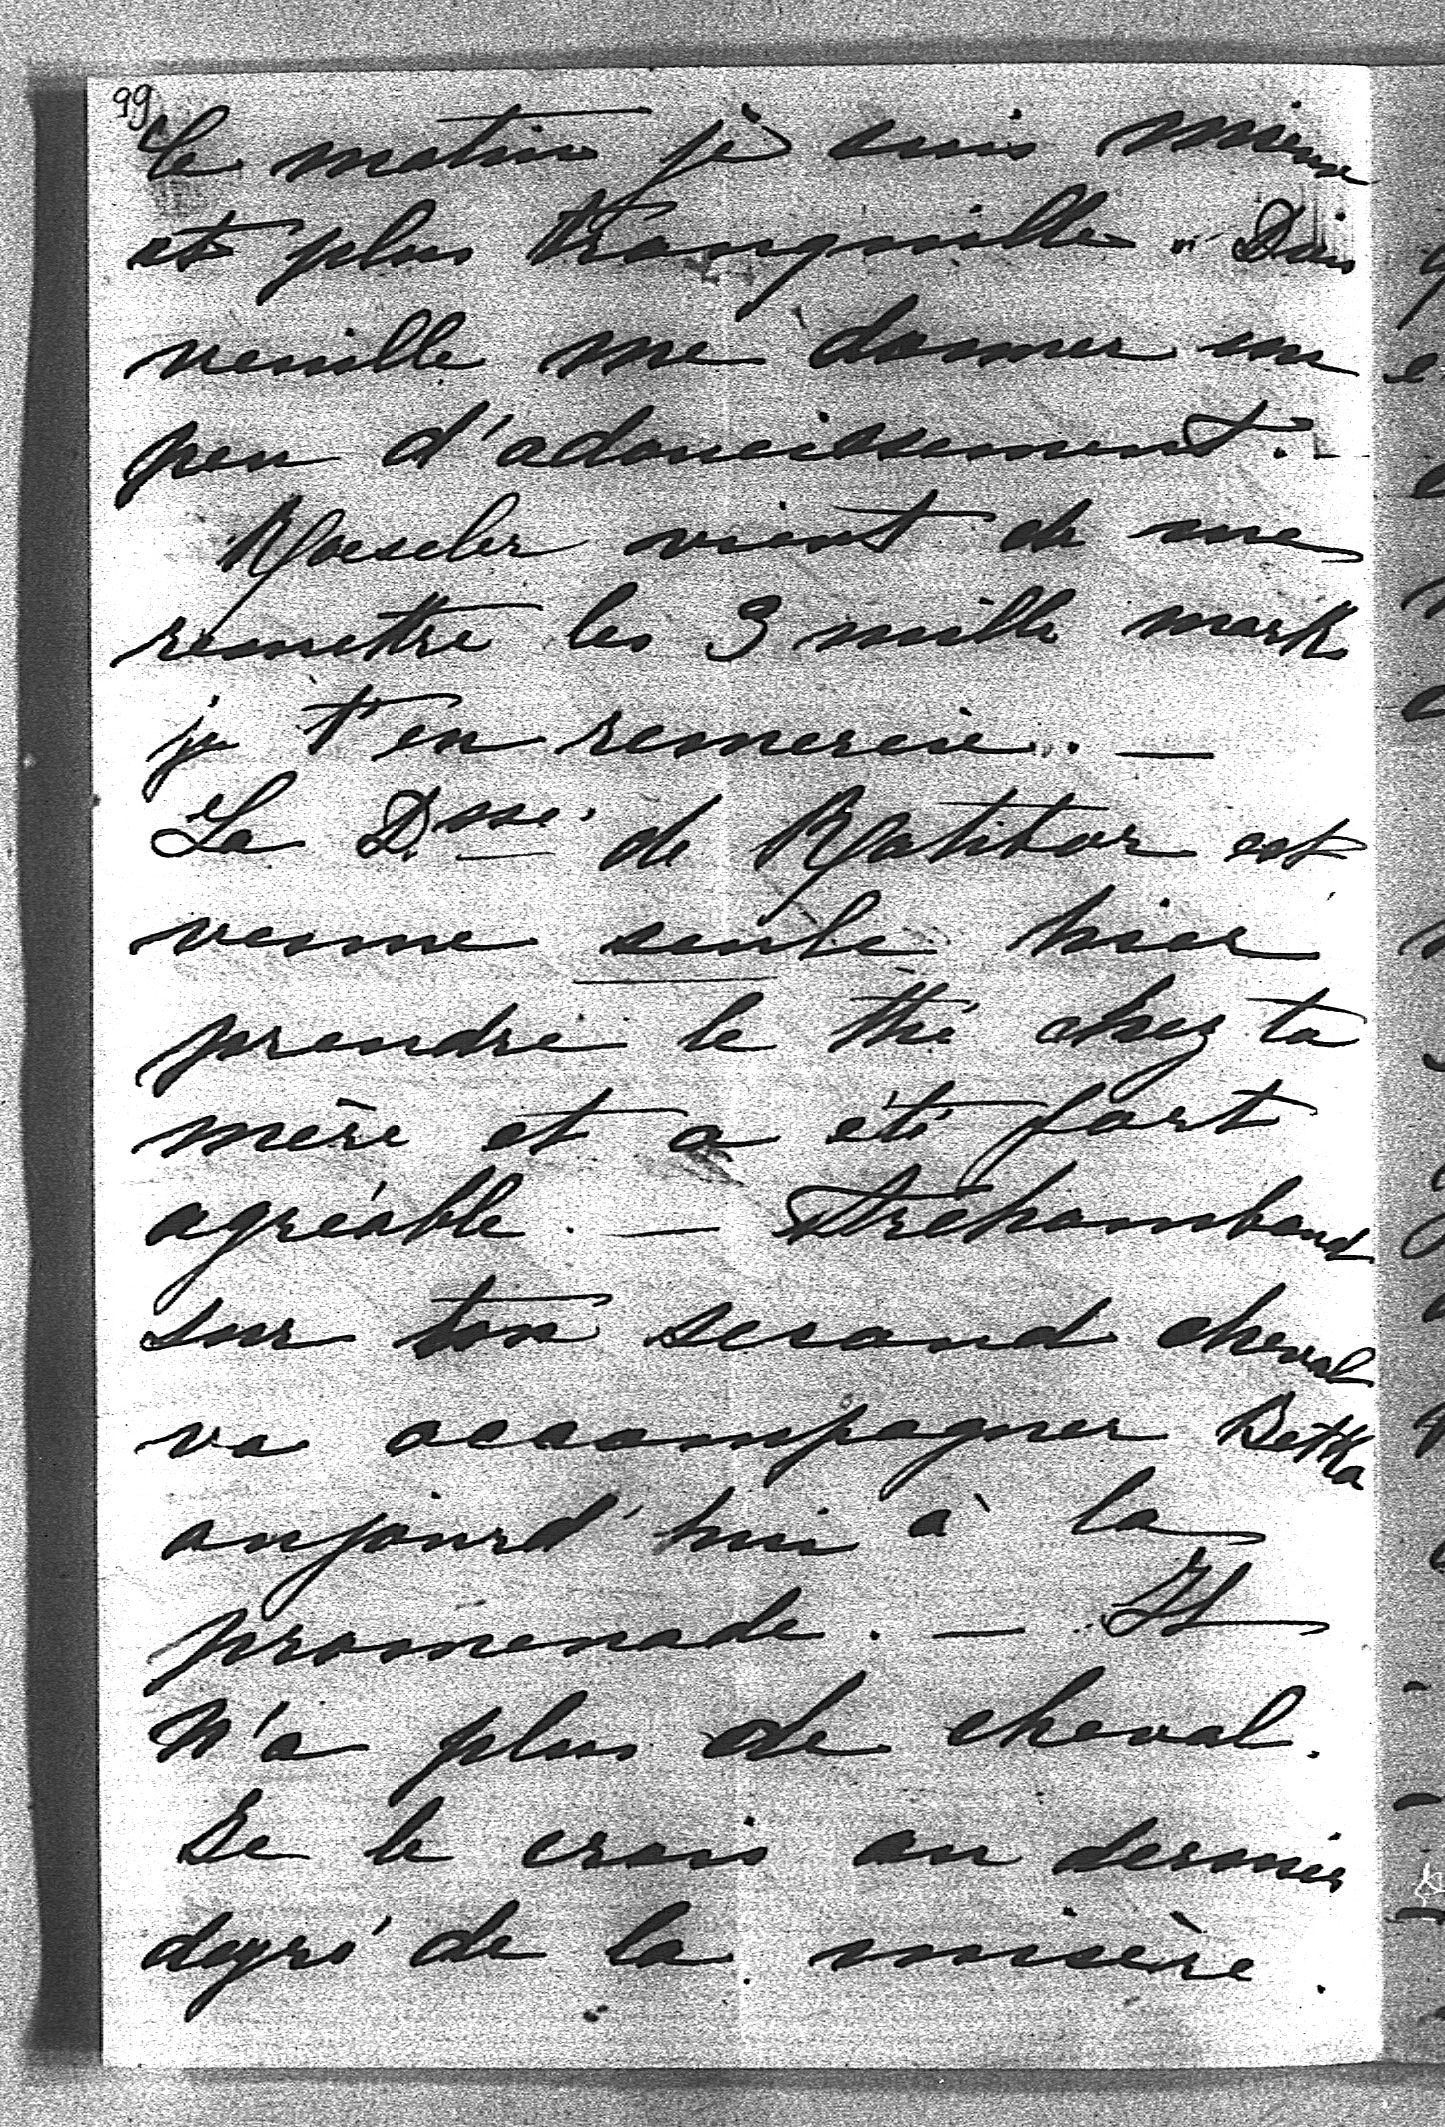 99
Ce matin je suis mieux
et plus tranquille. Dieu
veuille me donner un
peu d'adoucissement. —
Roeseler vient de me
remettre les 3 mille marks
je t'en remercie. —
La Dsse. de Ratibor est
venue seule hier
prendre le thé chez ta
mère et a été fort
agréable. —
sur ton second cheval
va accompagner Betka
aujourd'hui à la
promenade. — Il
n'a plus de cheval.
Je le crois au dernier
degré de la misère.